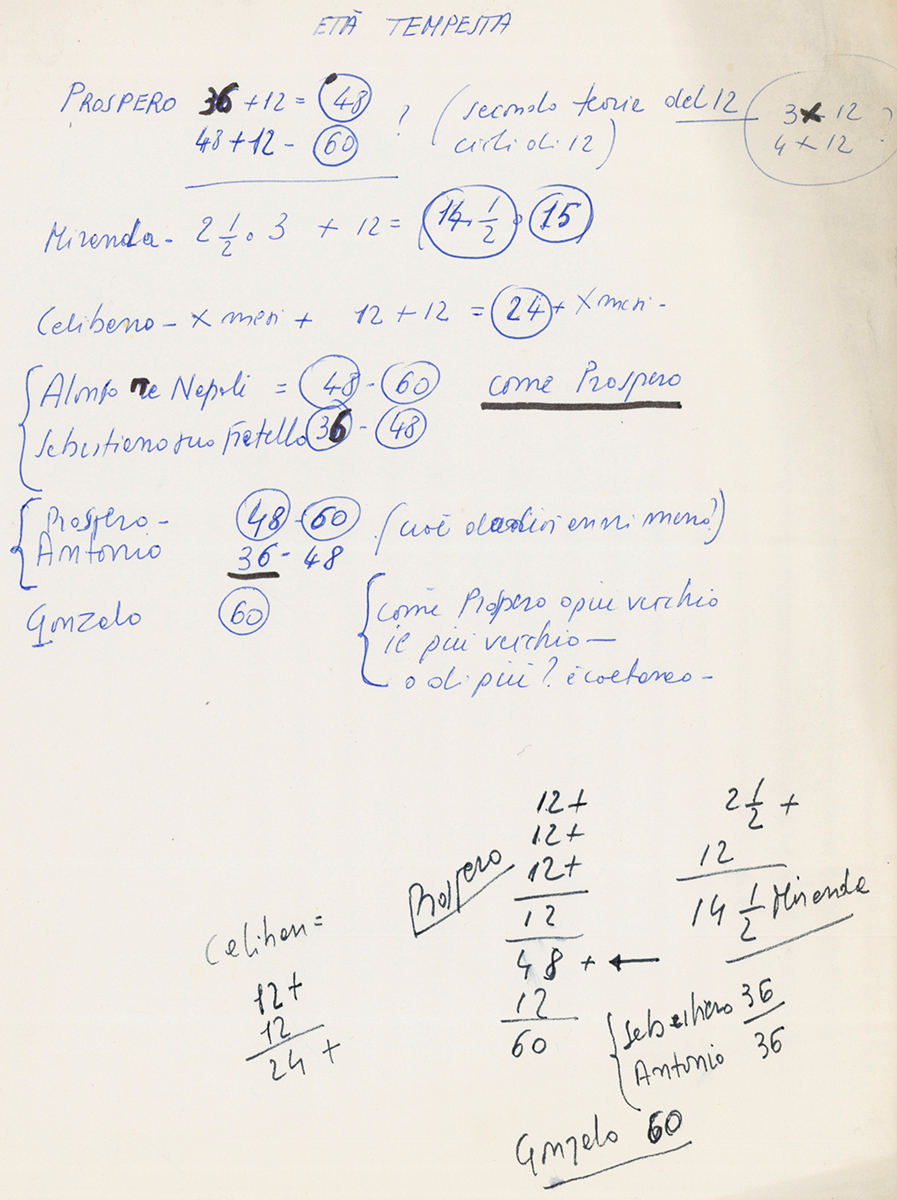 ETÀ TEMPESTA
PROSPERO 36 + 12 = 48 ? (secondo teorie del 12 3 x 12 ?
48 + 12 - 60 cicli di 12) 4 + 12
Miranda - 2 1/2 o 3 + 12 = 14 1/2 o 15
Calibano - x mesi + 12 + 12 = 24 + x mesi -
Alonso re Napoli = 48 - 60 come Prospero
Sebastiano suo fratello 36 - 48
Prospero - 48 - 60 (cioè dodici anni meno?)
Antonio 36 - 48
Gonzalo 60 come Prospero o più vecchio
il più vecchio -
o di più? è coetaneo -
Caliban =
12 +
12
24 +
Prospero
12 +
12 +
12 +
12
48 + ←
12
60
2 1/2 +
12
14 1/2 Miranda
Sebastiano 36
Antonio 36
Gonzalo 60